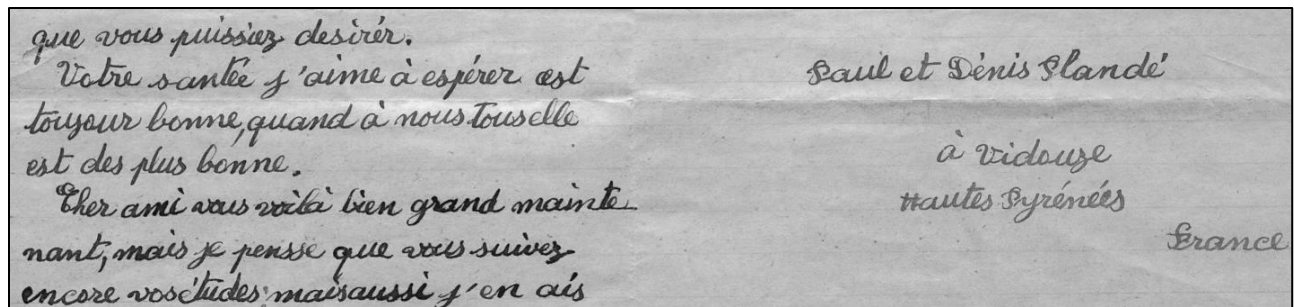 que vous puissiez desirér.
Votre santée j'aime à espérer est
toujour bonne, quand à nous tous elle
est des plus bonne.
Cher ami vous voilà bien grand mainte
nant, mais je pensse que vous suivez
encore vos études; mais aussi j'en ais
Paul et Dénis Plandé
à Vidouze
Hautes Pyrénées
France